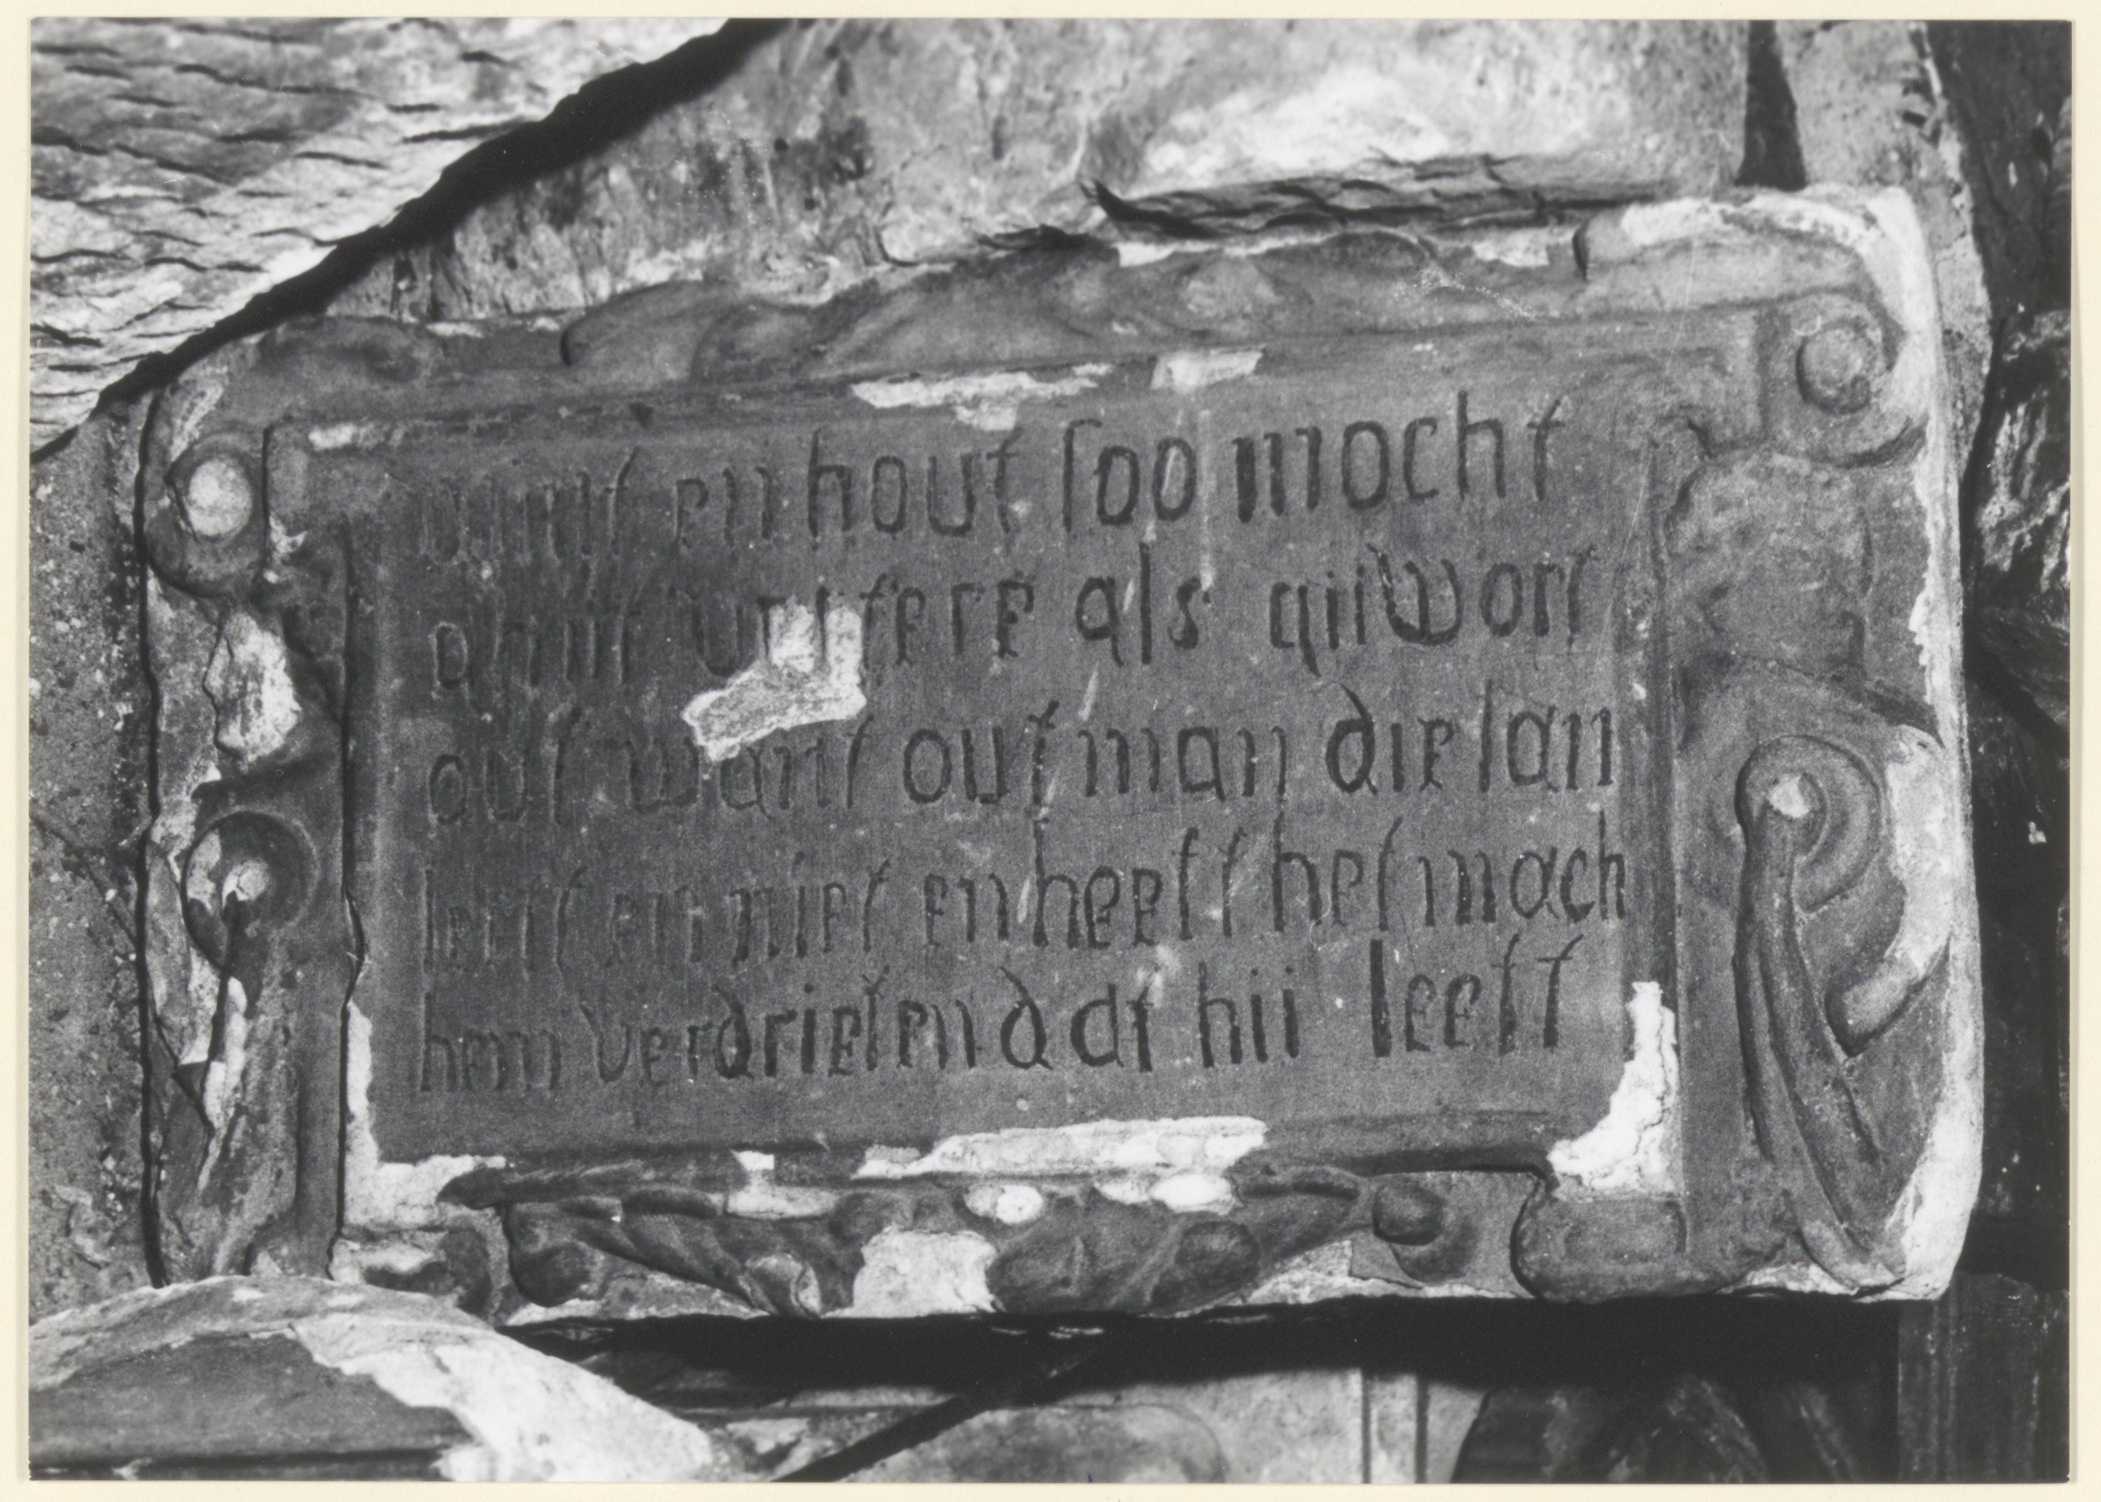 wint en hout soo mocht
ghiit als gii wort
out want out man die lan
leeft en niet en heeft het mach
hem verdrieten dat hii leeft